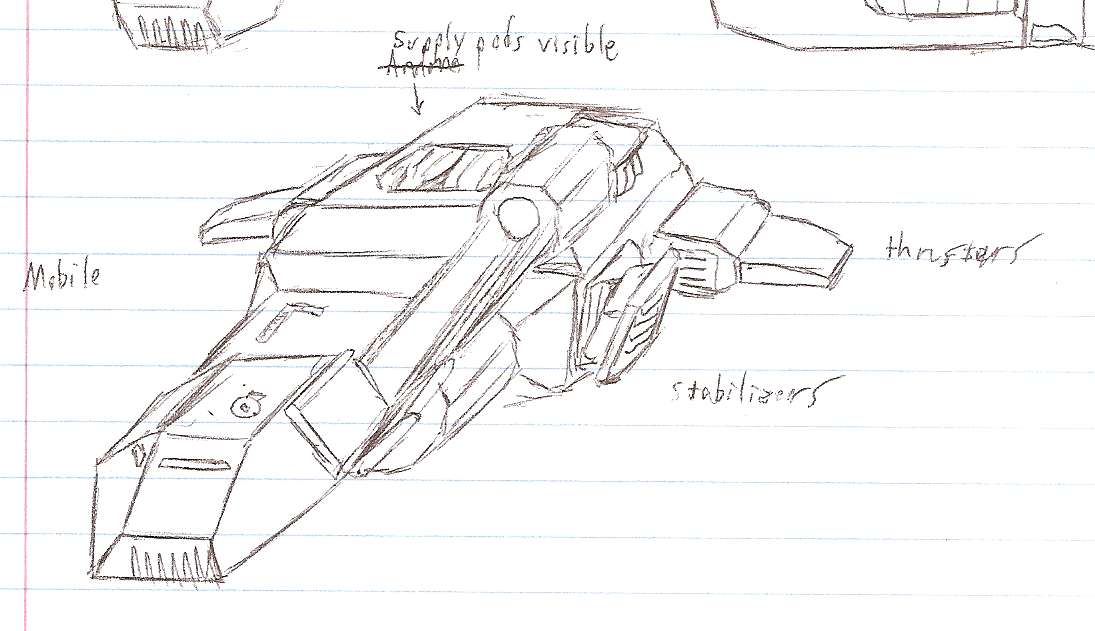 Supply pods visible
Mobile
thrusters
stabilizers